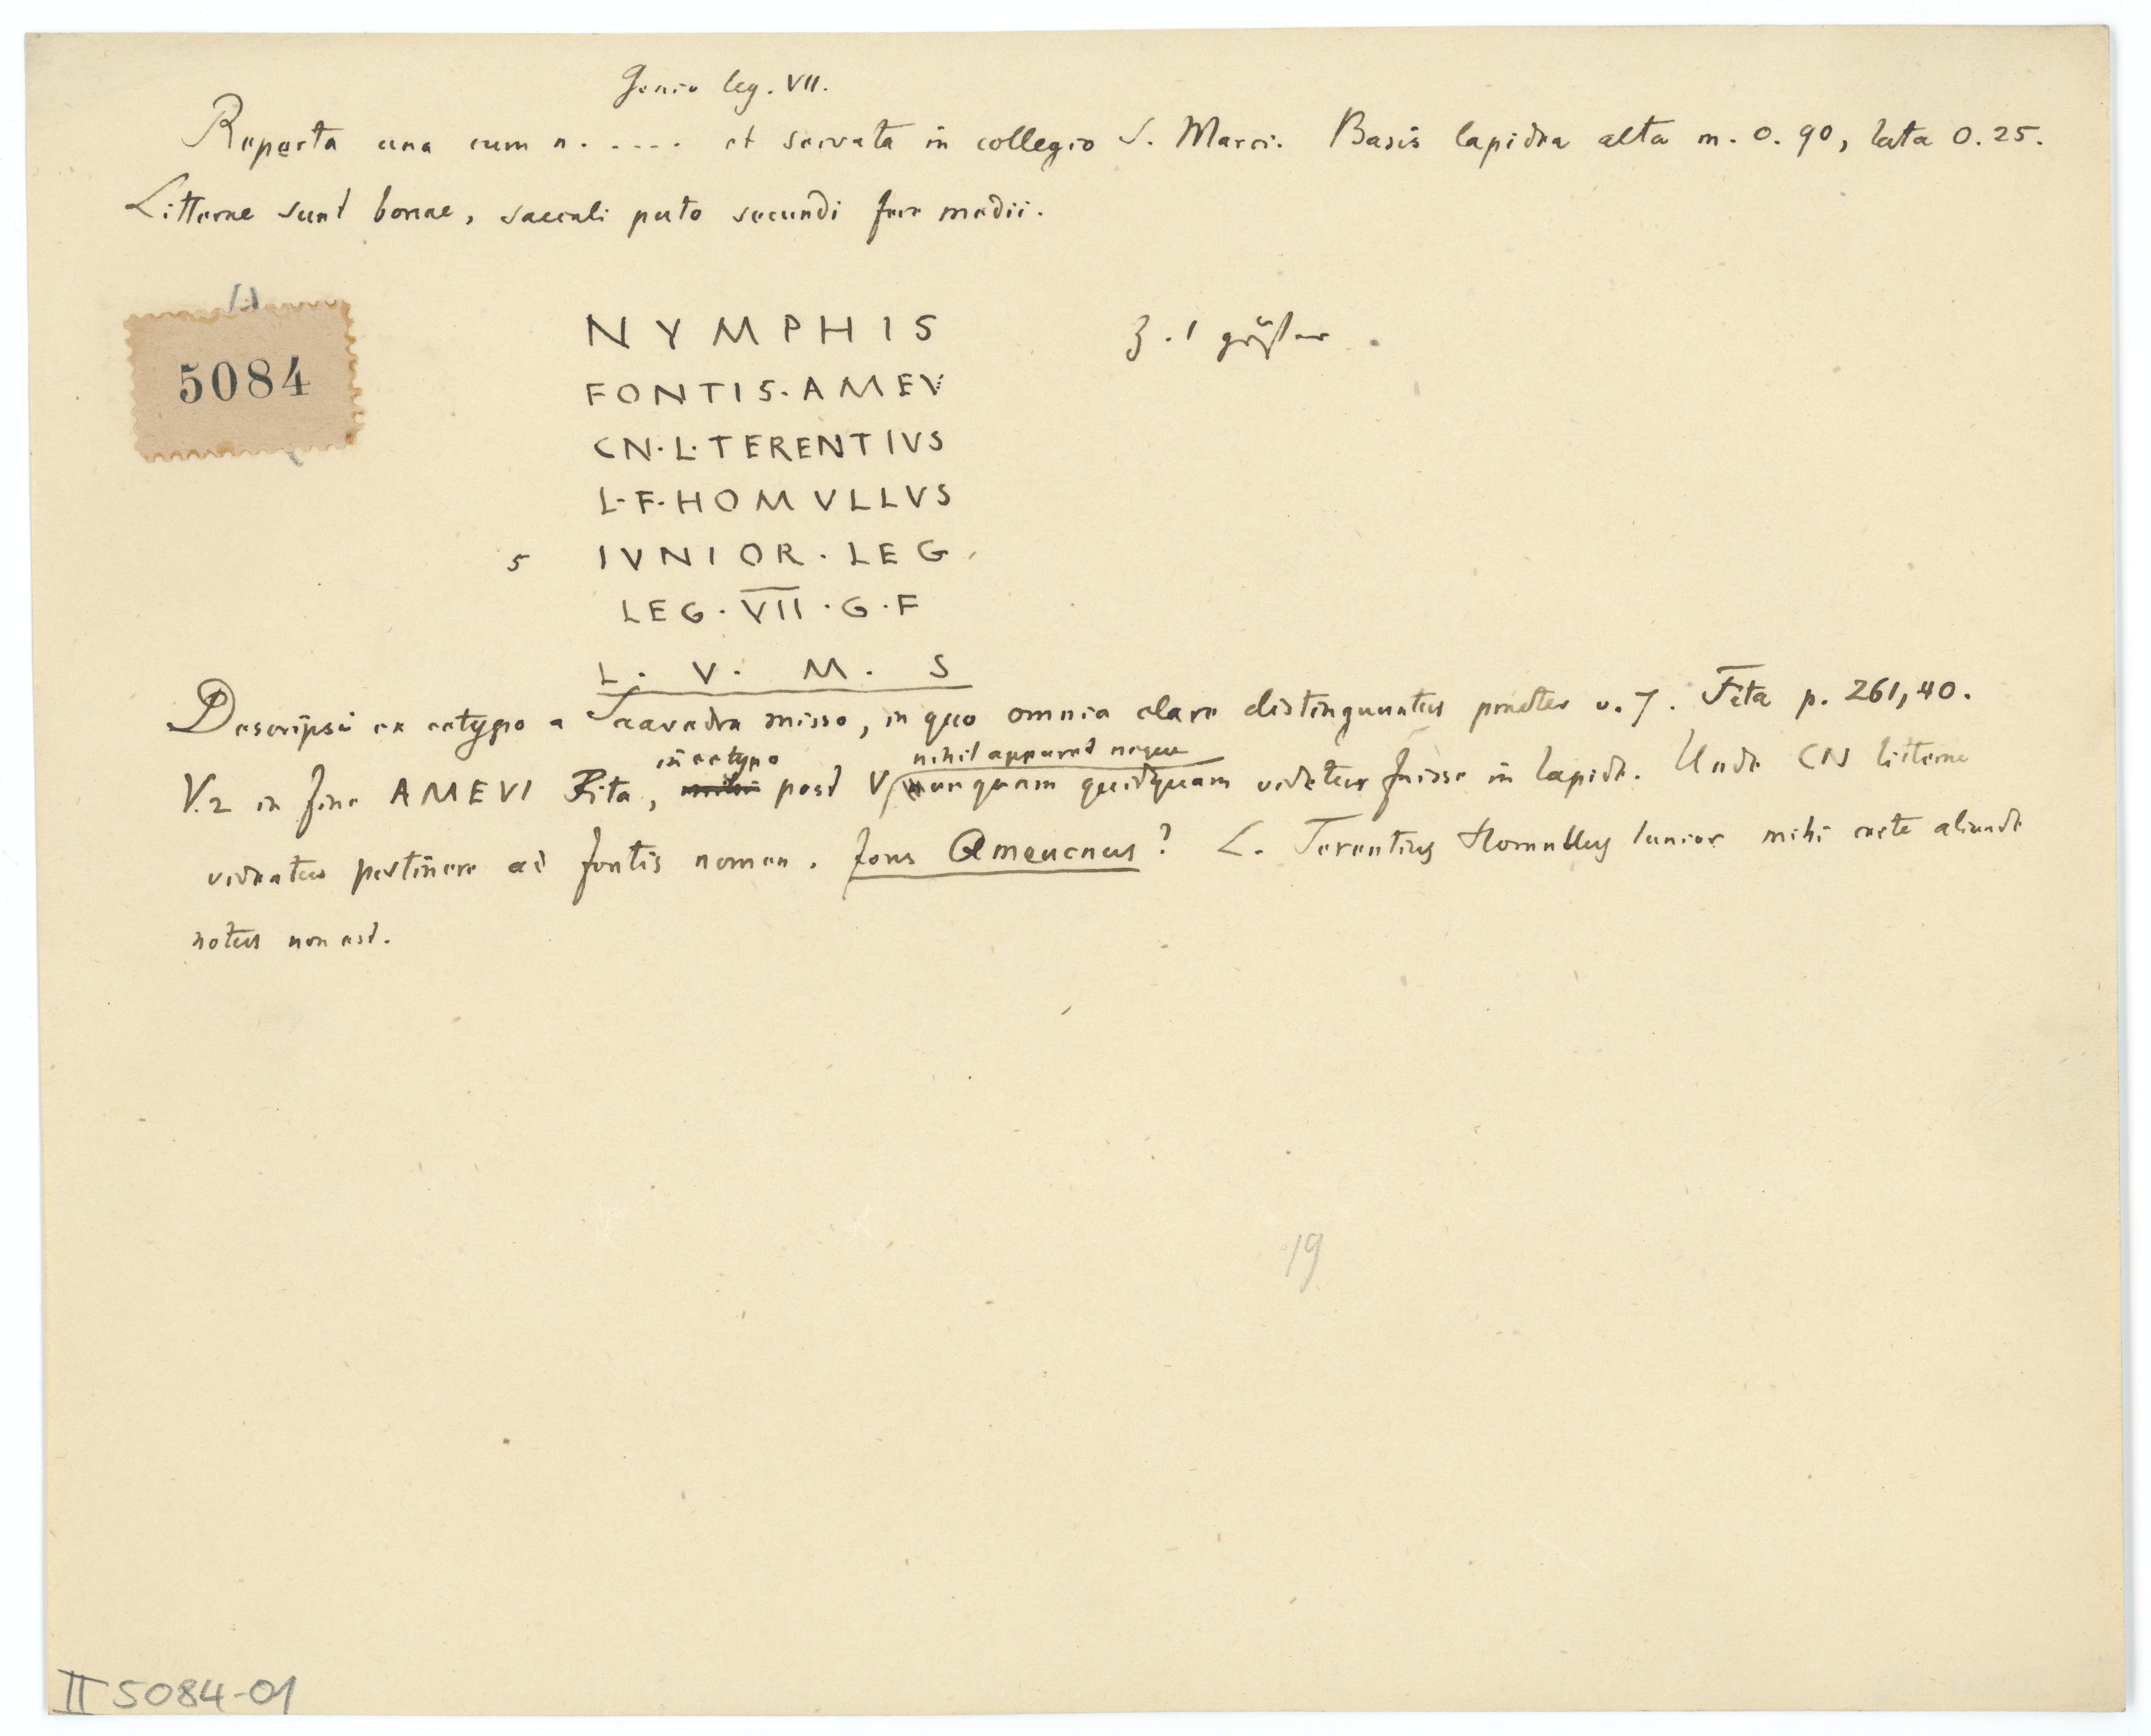 Genio leg. VII.
Reperta una cum n. .... et servata in collegio S. Marci. Basis lapidea alta m. 0.90, lata 0.25.
Litterae sunt bonae, saeculi puto secundi fere medii.
5084
NYMPHIS
Z. 1 größer.
FONTIS·AMEV
CN·L·TERENTIVS
L·F·HOMVLLVS
5 IVNIOR·LEG
LEG·VII·G·F
L. V. M. S
Descripsi ex ectypo a Saavedra misso, in quo omnia clare distinguuntur praeter v. 7. Fita p. 261,40.
in ectypo nihil apparet neque
V. 2 in fine AMEVI Fita, post V unquam quidquam videtur fuisse in lapide. Unde CN litterae
videntur pertinere ad fontis nomen. fons Ameucnus? L. Terentius Homullus Iunior mihi certe aliunde
notus non est.
19
II 5084-01